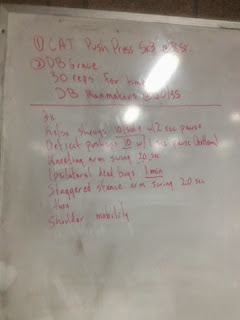 ① CAT Push Press 5x3 @
② DB Grace
30 reps for time
DB Manmakers
3x
swings 10 w/2 sec pause
Deficit pushups 10 w/ sec pause (bottom)
Kneeling arm swing 20 sec
Ipsilateral dead bugs 1 min
Staggered stance arm swing 20 sec
then
Shoulder mobility